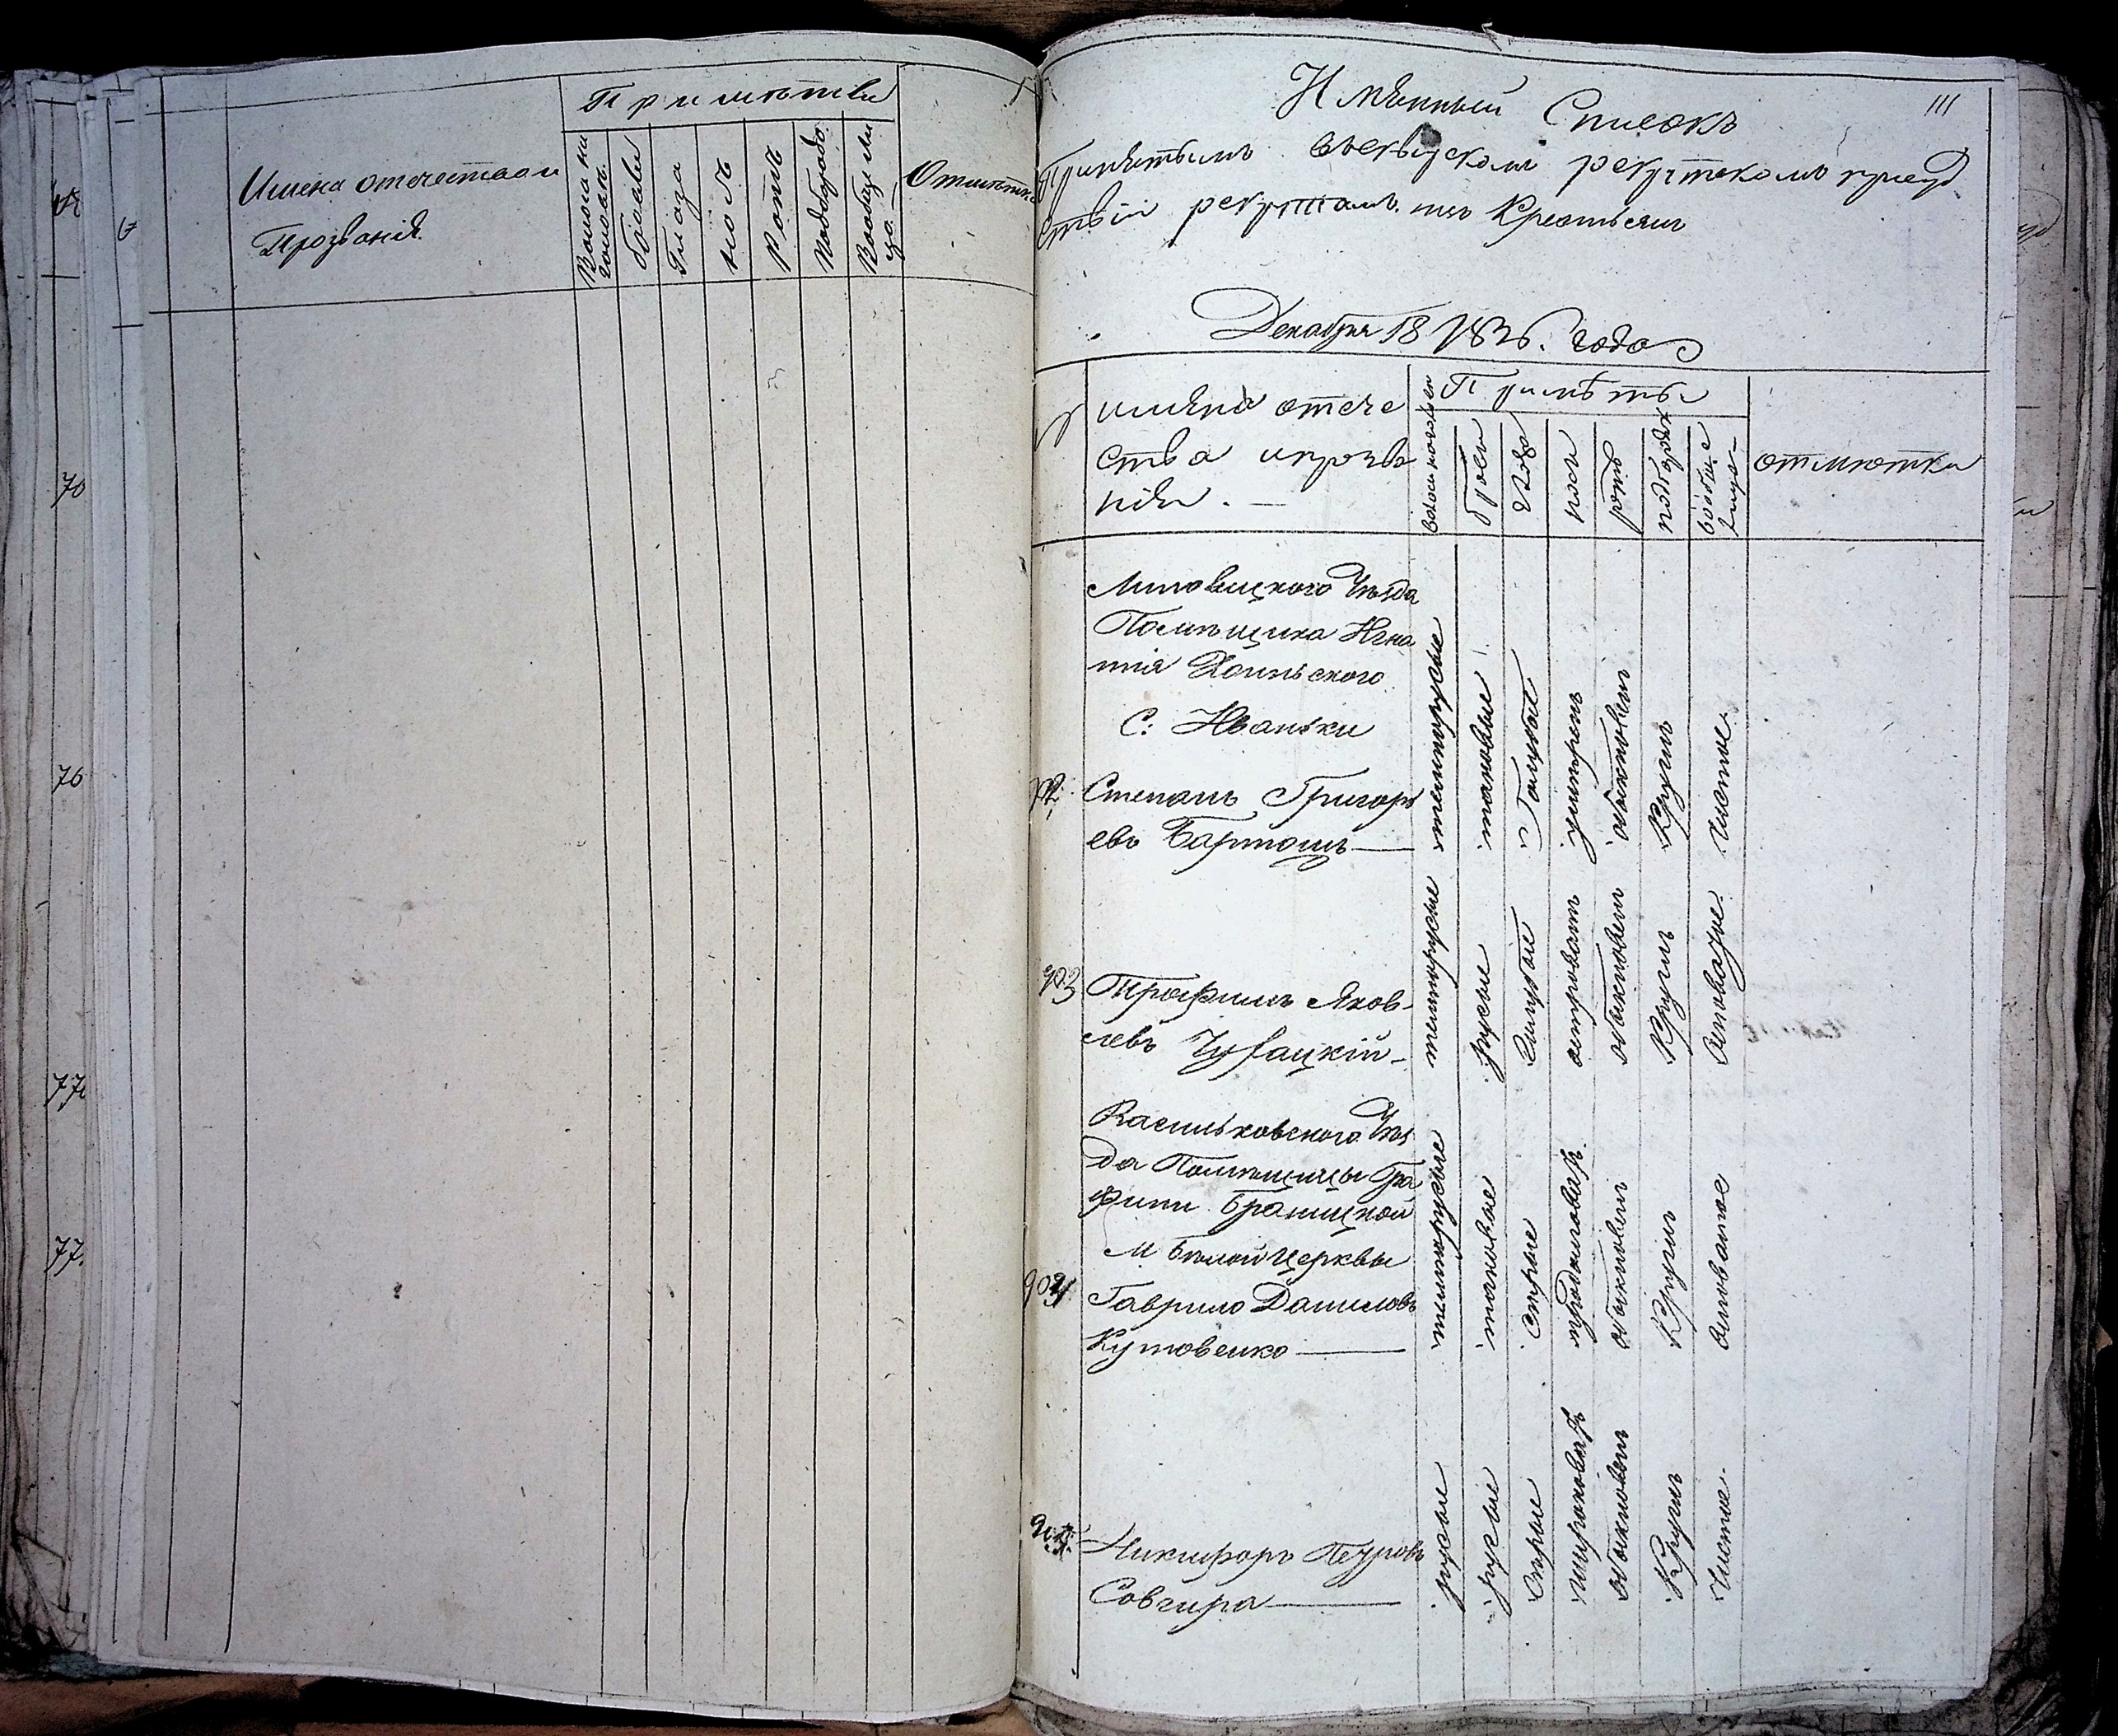 70
76
77
77.
6
Имена отечества и
Прозванія.
Примѣты
Волоса на
головѣ.
брови
Глаза
носъ
Ротъ
Подбородо.
Вообще ли
цо.
Отмѣтки
111
Имянный Списокъ
Принятымъ рекрутскомъ присуд
ствіи рекрутамъ изъ Крестьянъ
Декабря 18 1836. года
имяна отече
ства ипрозва
нія. —
Примѣты
волоса наголов
брови
глаза
носъ
ротъ
подбородок
вообще
лицо
отмѣтки
Липовицкого Уѣзда
Помѣщика Игна
тія
С: Иваньки
902. Степанъ Григорь
евъ Бартошъ —
темнорусые
таковые
Голубые
умѣренъ
обыкновенъ
Круглъ
Чистое.
903 Трофимъ Яков-
левъ Чу ацкій -
темнорусые
русые
Голубые
островатъ
обыкновенъ
Круглъ
Васильковского Уѣз
да Помѣщицы Гра
фини Браницкой
М. Бѣлой Церквы
904 Гаврило Даниловъ
Кутовенко —
темнорусые
таковые
Сѣрые
продолговатъ
обыкновенъ
Круглъ
905. Никифоръ Петровъ
Совгира —
русые
русые
Сѣрые
широковатъ
обыкновенъ
Круглъ
Чистое.